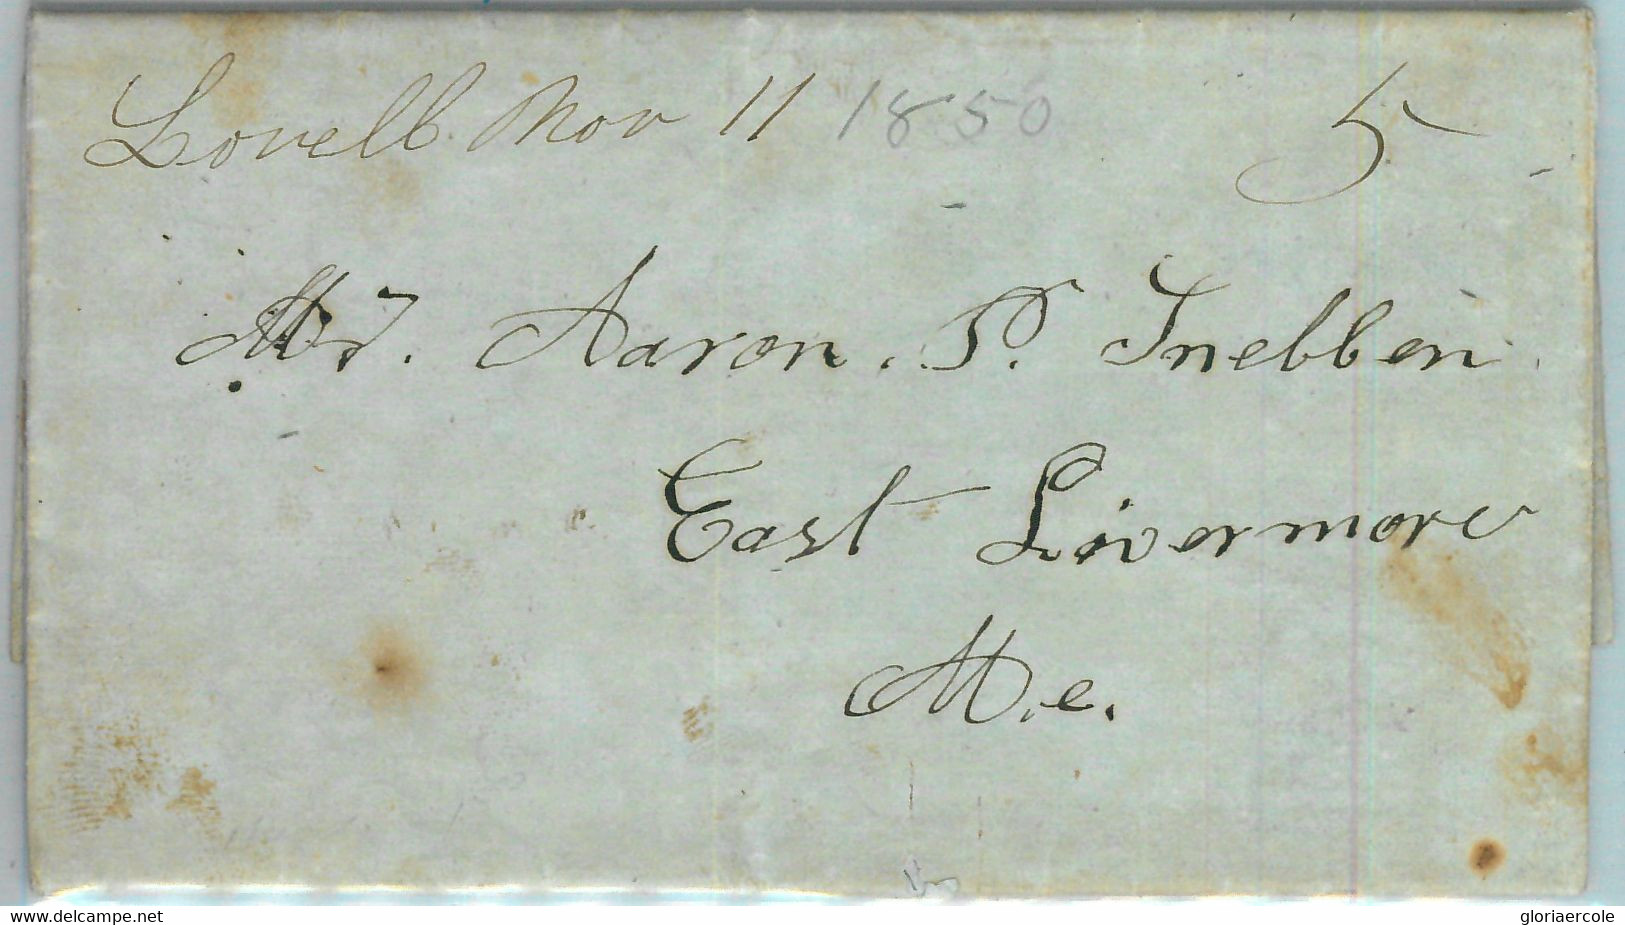 Lovell Nov 11 1850 5
Mr. Aaron. P. Trebben
East Livermore
Me.
www.delcampe.net gloriaercole